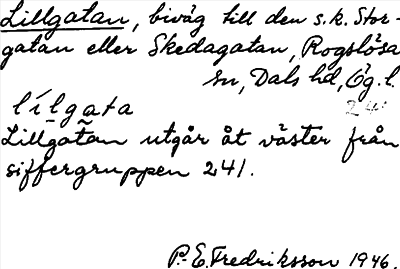 Lillgatan, biväg till den s.k. Stor-
gatan eller Skedagatan, Rogslösa
sn, Dals hd, Ög. l.
lílgata
24
Lillgatan utgår åt väster från
siffergruppen 241.
P.-E. Fredriksson 1946.